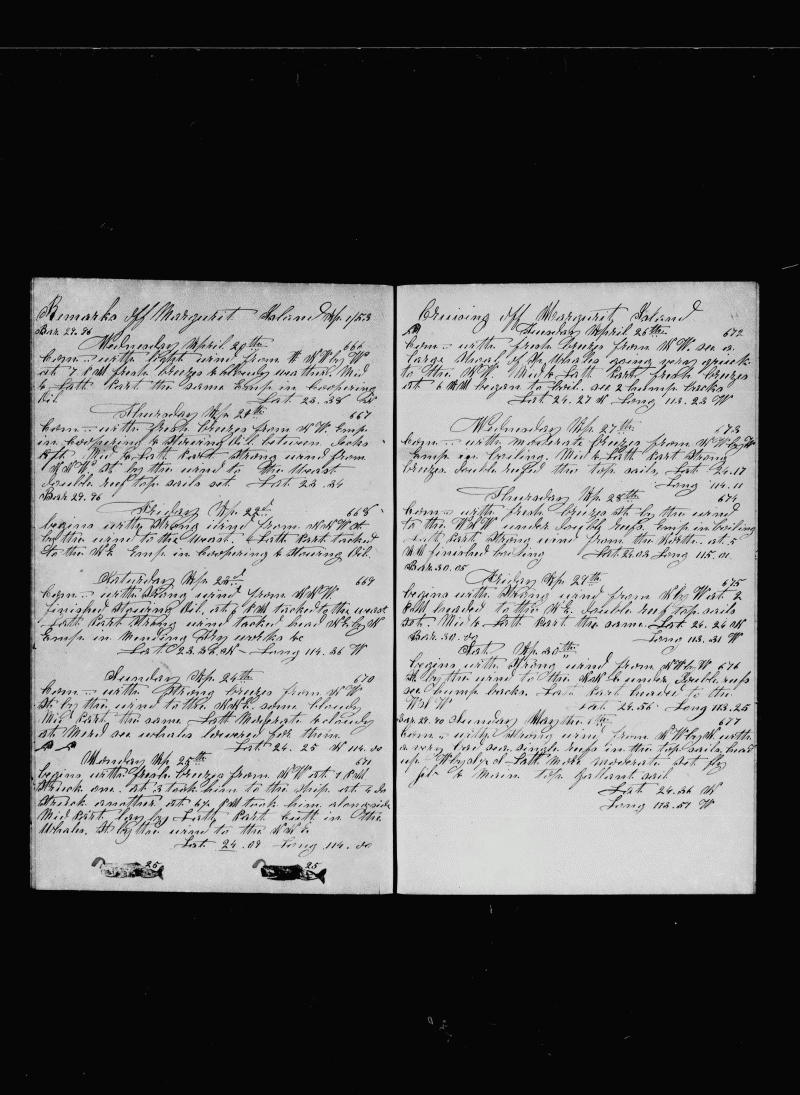 Remarks off Margurit Island Ap. 1/53
Bar. 29.96
Wednesday April 20th 666
Com— with light wind from NW by W
at 7 PM fresh breezes & cloudy weather. Mid
& Latt Part the same Emp in Coopering
Oil Lat 23.38 N
Thursday Ap. 21st 667
Com— with fresh breezes from NW. Emp
in Coopering & Stowing Oil between decks
Aft. Mid & Latt Part strong wind from
NNW. St by the wind to the Weast
double reef top sails set. Lat 23.34
Bar 29.96
Friday Ap. 22d 668
begins with strong wind from NNW St
by the wind to the Weast. Latt Part tacked
to the NE Emp in Coopering & Stowing Oil.
Saturday Ap. 23d 669
Com— with Strong wind from NNW.
finished Stowing Oil, at PM tacked to the weast
Latt Part Strong wind tacked head NE by N
Emp. in Mending Try works &c
Lat 23.38 N — Long 114.36 W
Sunday Ap. 24th 670
Com— with Strong breezes from NW
St by the wind to the NNE. some cloudy
Mid Part the same. Latt Moderate & cloudy
at Merd see whales lowered for them
Lat. 24.25 N 114.00
Monday Ap. 25th 671
begins with fresh breezes from NW at 1 PM
Struck one. at 3 took him to the ship. at 4 do
Struck another at 6½ PM took him alongside
Mid Part lay by Latt Part cutt in the
Whales. St by the wind to the
Lat. 24.09 Long 114.00
25 25
Cruising off Margurit Island
Tuesday April 26th 672
Com— with fresh breezes from NW. see a
large Shoal of Sp. Whales going very quick
to the NW. Mid & Latt Part fresh breezes
at 6 AM began to boil. see 2 hump backs
Lat 24.27 N Long 113.23 W
Wednesday Ap. 27th 673
Com— with moderate breezes from NW by W
Emp in boiling. Mid & Latt Part Strong
breezes. double reefed the top sails. Lat 24.17
Long 114.11
Thursday Ap. 28th 674
Com— with fresh breezes St by the wind
to the WNW under double reefs. Emp in boiling
Latt Part Strong wind from the North. at 5
AM finished boiling Lat 24.03 Long 115.01
Bar. 30.05
Friday Ap. 29th 675
begins with Strong wind from N by W at 2
PM headed to the NE. double reef top sails
set. Mid & Latt Part the same. Lat. 24.24 N
Bar. 30.00 Long 113.31 W
Sat Ap. 30th
begins with Strong wind from NW by W 676
St by the wind to the under double reefs
see hump backs. Latt Part headed to the
WSW Lat 24.56 Long 113.25
Bar. 29.90 Sunday May the 1th 677
Com— with strong wind from NW by N with
a very bad sea. single reefs in the top sails, head
up W by S Latt More moderate set fly
jib & Main top gallant sail
Lat 24.36 N
Long 113.57 W